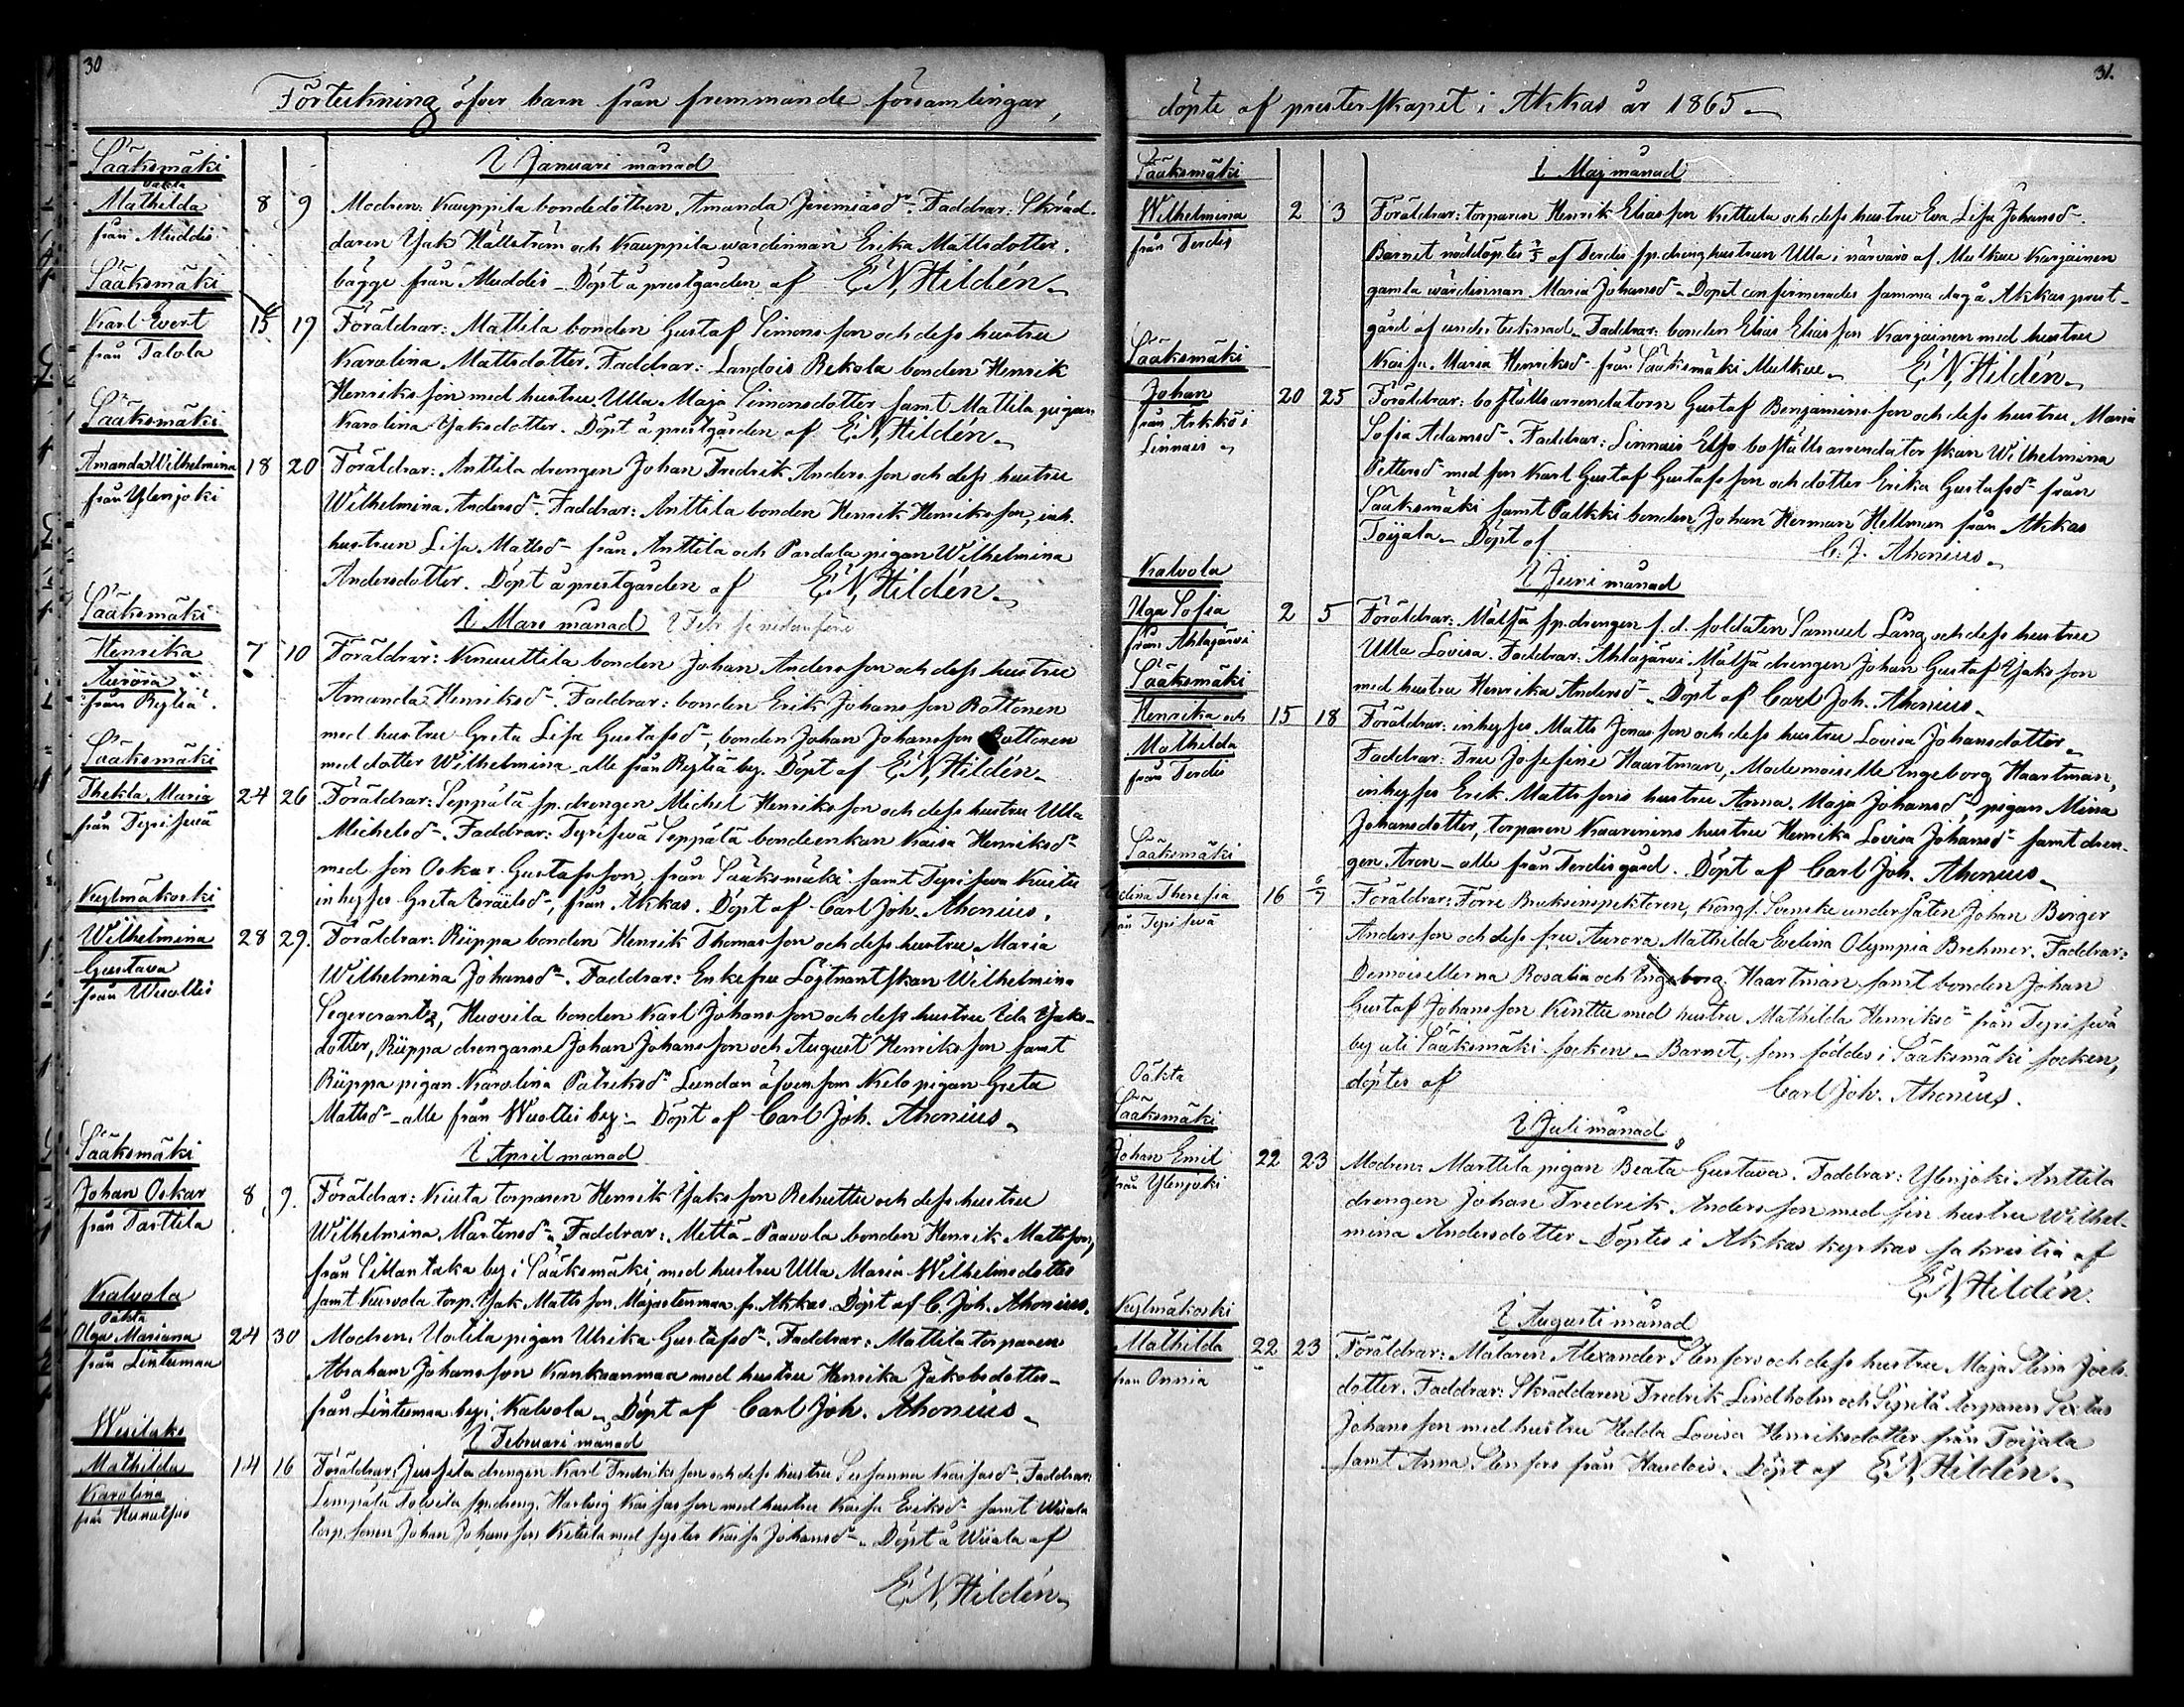 30
Förteckning öfver barn från fremmande församlingar,
Sääksmäki
I Januari månad
oäkta
Mathilda 8 9 Modren: Kauppila bondedottren Amanda Jeremiasdr. Faddrar: Skräd-
från Muddis daren Isak Hällström och Kauppila wärdinnan Erika Mattsdotter.
Sääksmäki bägge från Muddis – Döpt å prestgården af E. N. Hildén
Karl Evert 15 19 Föräldrar: Mattila bonden Gustaf Simonsson och dess hustru
från Talola Karolina Mattsdotter. Faddrar: Landois Rekola bonden Henrik
Henriksson med hustru Ulla Maja Simonsdotter samt Mattila pigan
Sääksmäki Karolina Isaksdotter. Döpt å prestgården af E. N. Hildén
Amanda Wilhelmina 18 20 Föräldrar: Anttila drengen Johan Fredrik Andersson och dess hustru
från Ylenjoki Wilhelmina Andersdr. Faddrar: Anttila bonden Henrik Henriksson, inh.
hustrun Lisa Mattsdr från Anttila och Pardala pigan Wilhelmina
Andersdotter. Döpt å prestgården af E. N. Hildén
Sääksmäki I Mars månad I Febr. se nedanföre
Henrika 7 10 Föräldrar: Knuuttila bonden Johan Andersson och dess hustru
Aurora Amanda Henriksdr. Faddrar: bonden Erik Johansson Rottonen
från Rytiä. med hustru Greta Lisa Gustafsdr, bonden Johan Johansson Rottonen
Sääksmäki med dotter Wilhelmina – alle från Rytiä by. Döpt af E. N. Hildén
Thekla Maria 24 26 Föräldrar: Seppälä sp.drengen Michel Henriksson och dess hustru Ulla
Michelsdr. Faddrar: Seppälä bondeenkan Kaisa Henriksdr
med son Oskar Gustafsson från Sääksmäki samt
inhyses Greta Israilsdr, från Akkas. Döpt af Carl Joh. Ahonius.
Kylmäkoski
Wilhelmina 28 29. Föräldrar: Riippa bonden Henrik Thomasson och dess hustru Maria
Gustava Wilhelmina Johansdr. Faddrar: Enkefru Löjtnantskan Wilhelmina
Segercrantz, Huovila bonden Karl Johansson och dess hustru Ida Isaks-
dotter, Riippa drengarne Johan Johansson och August Henriksson samt
Riippa pigan Karolina Patriksdr Lundan äfvensom pigan Greta
Mattsdr – alle från by. – Döpt af Carl Joh. Ahonius
Sääksmäki I April månad
Johan Oskar 8 9. Föräldrar: torparen Henrik Isaksson och dess hustru
från Tarttila Wilhelmina Mårtensdr. Faddrar: Mettä-Paavola bonden Henrik Mattsson,
från by i Sääksmäki, med hustru Ulla Maria Wilhelmsdotter
Kalvola samt torp. Isak Mattsson fr. Akkas. Döpt af C. Joh. Ahonius.
oäkta
Olga Mariana 24 30 Modren: Uotila pigan Ulrika Gustafsdr. Faddrar: Mattila torparen
från Lintumaa Abraham Johansson Kankaanmaa med hustru Henrika Jakobsdotter
från Lintumaa by i Kalvola – Döpt af Carl Joh. Ahonius
Wesilaks I Februari månad
Mathilda 14 16 Föräldrar: Jussila drengen Karl Fredriksson och dess hustru Susanna Faddrar:
Karolina Lempäälä sp.dreng. Hartvig med hustru Kaisa Eriksdr samt
torp.sonen Johan Johansson med syster Kaisa Johansdr – Döpt å af
E. N. Hildén
31.
döpte af presterskapet i Akkas år 1865
Sääksmäki I Maj månad
Wilhelmina 2 3 Föräldrar: torparen Henrik Eliasson Kettula och dess hustru Eva Lisa Johansdr.
från Terdis Barnet nöddöptes af Terdis sp.dringhustrun Ulla i närvaro af Karjainen
gamla wärdinnan Maria Johansdr – Dopet confirmerades samma dag å Akkas prest-
gård af undertecknad – Faddrar: bonden Elias Eliasson Karjainen med hustru
Sääksmäki Kaisa Maria Henriksdr från Sääksmäki E. N. Hildén
Johan 20 25 Föräldrar: boställsarrendatorn Gustaf Benjaminsson och dess hustru Maria
Sofia Adamsdr. Faddrar: Linnais boställsarrendatorskan Wilhelmina
Linnais Pettersdr med son Karl Gustaf Gustafsson och dotter Erika Gustafsdr från
Sääksmäki samt bonden Johan Herman Hellman från Akkas
Toijala – Döpt af C. J. Ahonius
Kalvola I Juni månad
Sofia 2 5 Föräldrar: sp.drengen f. d. soldaten Samuel Lång och dess hustru
från Ahlajärvi Ulla Lovisa. Faddrar: Ahlajärvi drengen Johan Gustaf Isaksson
Sääksmäki med hustru Henrika Andersdr – Döpt af Carl Joh. Ahonius
Henrika och 15 18 Föräldrar: inhyses Matts Jonasson och dess hustru Lovisa Johansdotter
Mathilda Faddrar: Fru Josefine Haartman, Mademoiselle Ingeborg Haartman,
från Terdis inhyses Erik Mattssons hustru Anna Maja Johansdr, pigan Mina
Johansdotter, torparen hustru Henrika Lovisa Johansdr samt dren-
Sääksmäki gen Aron – alle från Terdis gård. Döpt af Carl Joh. Ahonius
Theresia 16 Föräldrar: Förre Bruksinspektoren, Kongl. Svenske undersåten Johan Birger
Andersson och dess fru Aurora Mathilda Evelina Olympia Brehmer. Faddrar:
Demoisellerna Rosalia och Ingeborg Haartman samt bonden Johan
Gustaf Johansson med hustru Mathilda Henriksdr från
by uti Sääksmäki socken – Barnet, som föddes i Sääksmäki socken,
Oäkta döptes af Carl Joh. Ahonius.
Sääksmäki I Juli månad
Johan Emil 22 23 Modren: Marttila pigan Beata Gustava. Faddrar: Ylenjoki Anttila
från Ylenjoki drengen Johan Fredrik Andersson med sin hustru Wilhel-
mina Andersdotter – Döptes i Akkas kyrkas sakristia af
E. N. Hildén.
Kylmäkoski I Augusti månad
Mathilda 22 23 Föräldrar: Målaren Alexander Stenfors och dess hustru Maja Stina
från Onnia dotter. Faddrar: Skräddaren Fredrik Lindholm och torparen
Johansson med hustru Hedda Lovisa Henriksdotter från Toijala
samt Anna Stenfors från Haudois. Döpt af E. N. Hildén